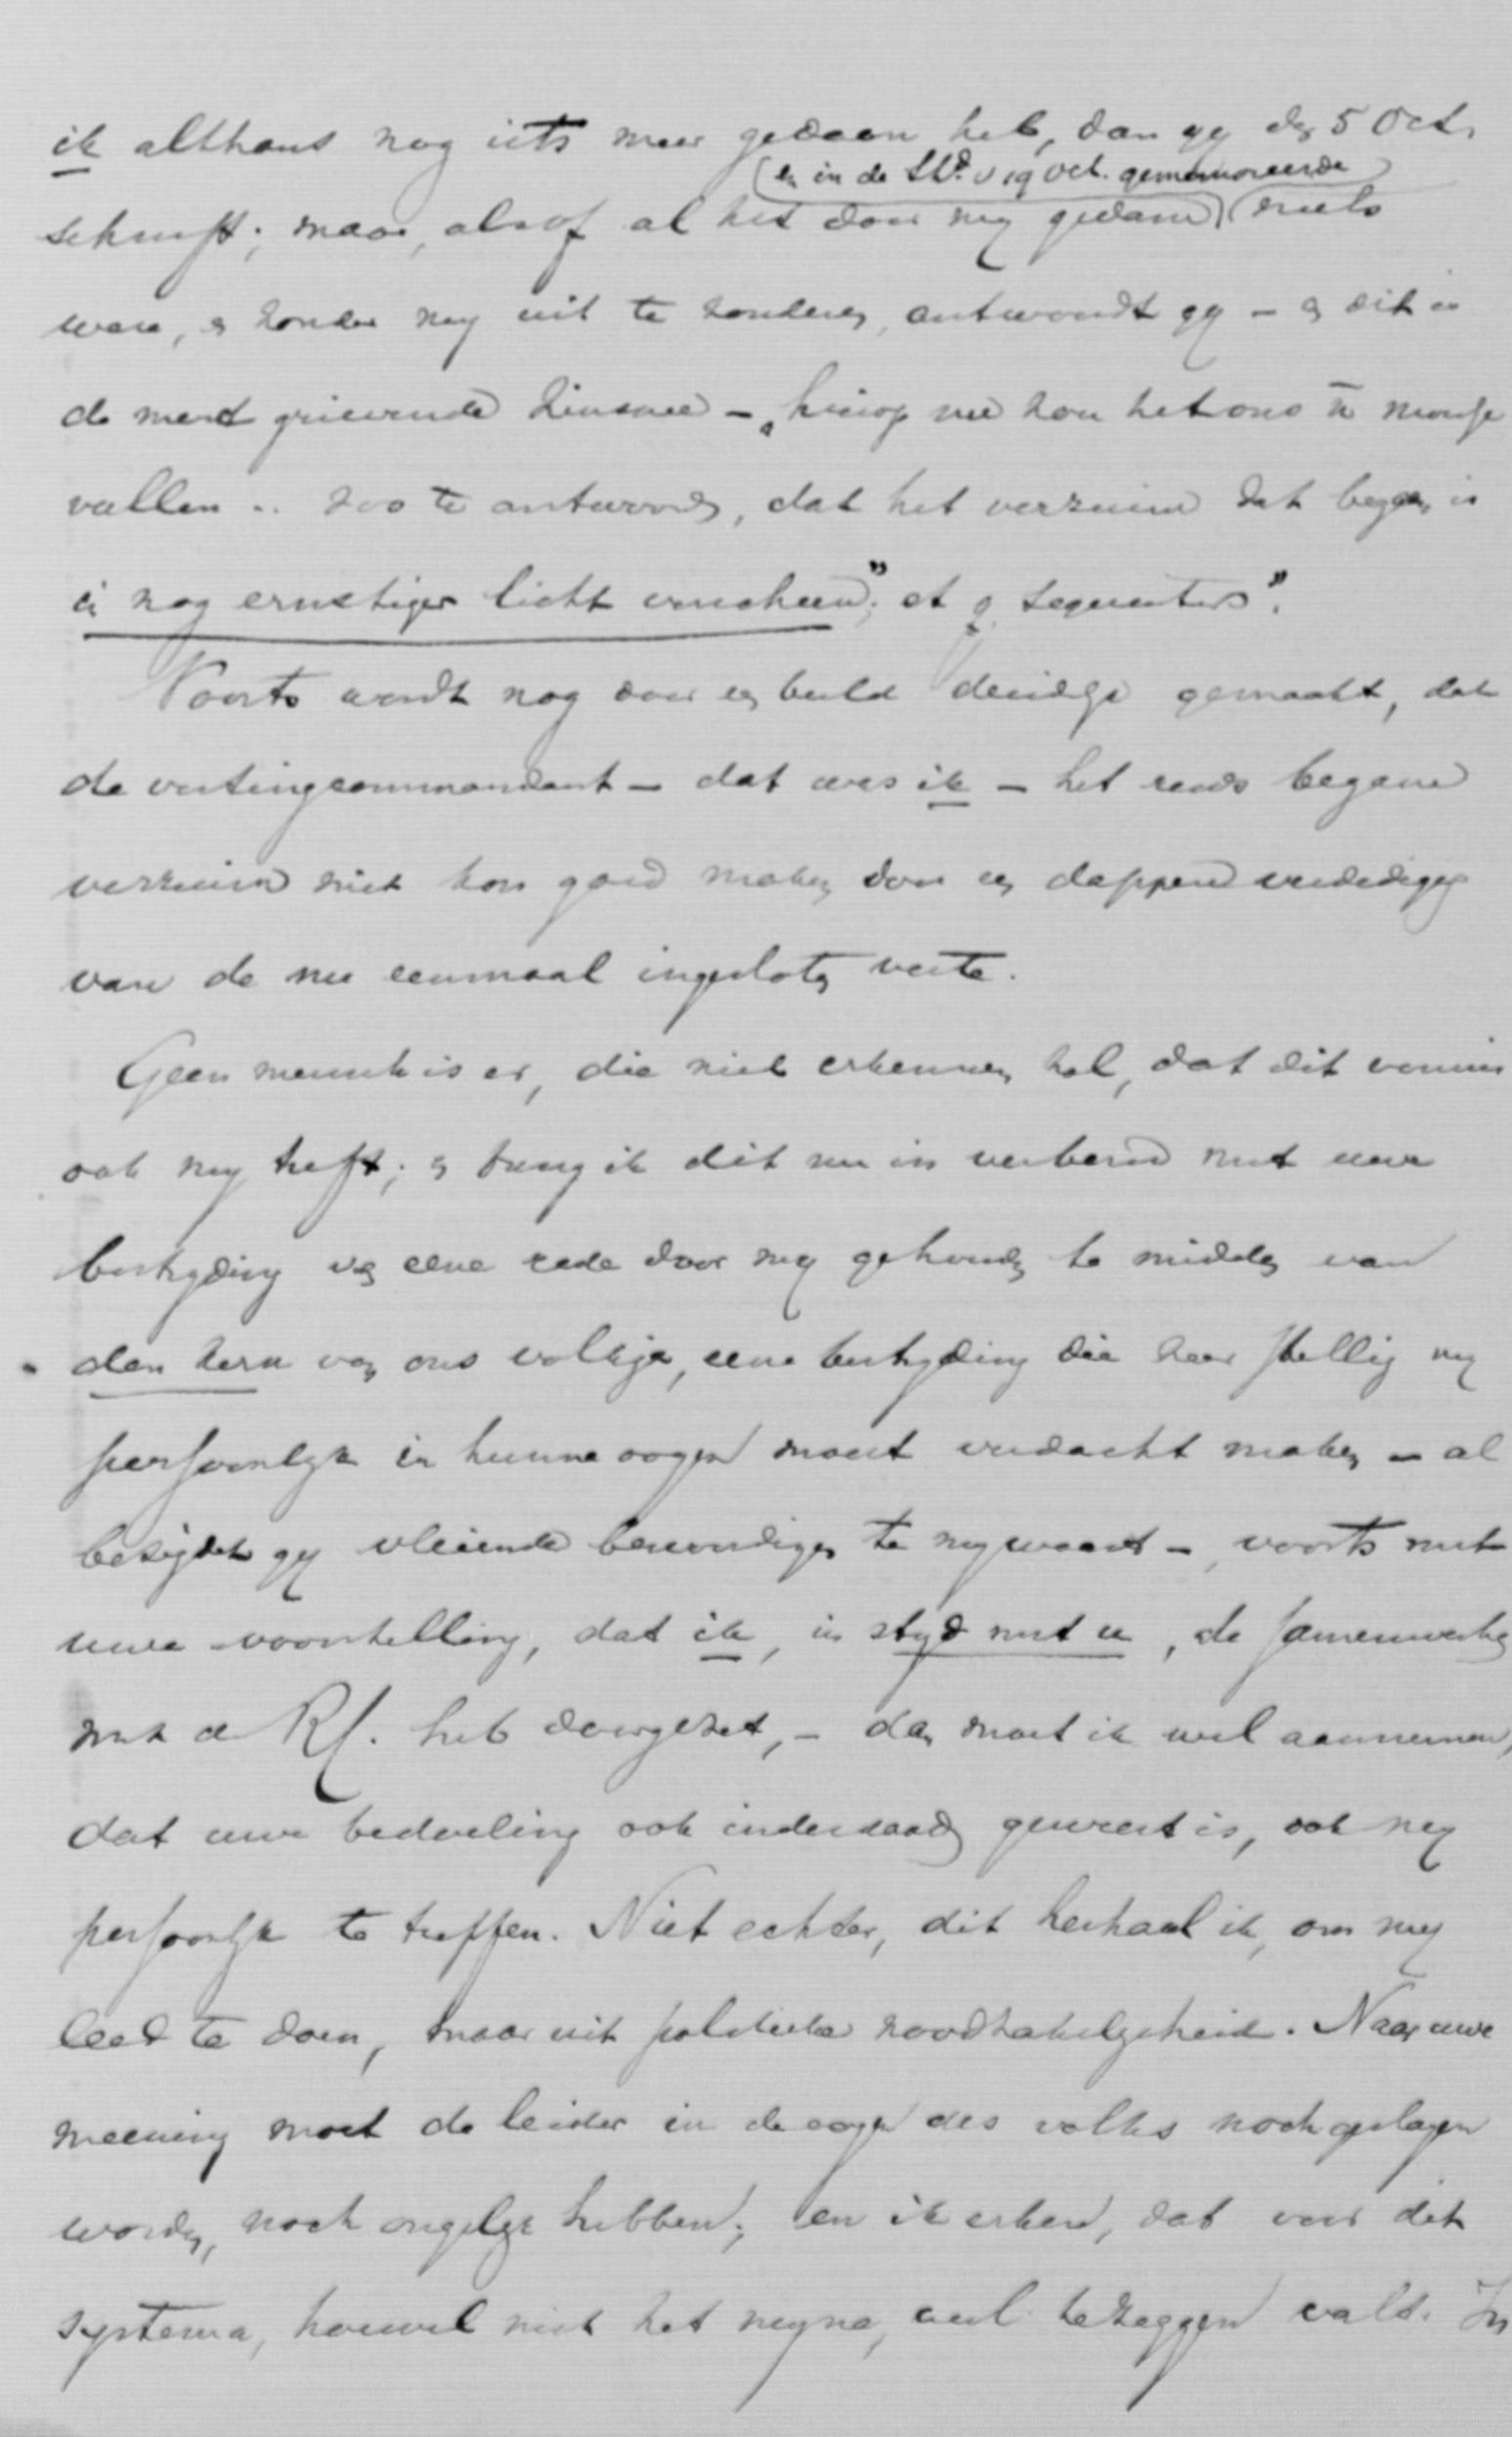 ik althans nog iets meer gedaan heb, dan gy den 5 Oct.
(en in de Std. v 19 Oct. gememoreerde)
schreeft; maar, alsof al het door my gedane niets
ware, en zonder my uit te zonderen, antwoordt gy – en dit is
de meest grievende zinsnee – „hierop nu zou het ons te moeilyk
vallen .. zoo te antwoorden, dat het verzuim dat begaan is
in nog ernstiger licht verscheen"; et q. sequentes".
Voorts wordt nog door een beeld duidelyk gemaakt, dat
de vestingcommandant – dat was ik – het reeds begane
verzuim niet kon goed maken door een dappere verdediging
van de nu eenmaal ingesloten veste.
Geen mensch is er, die niet erkennen zal, dat dit vonnis
ook my treft; en breng ik dit nu in verband met uwe
bestryding van eene rede door my gehouden te midden van
den kern van ons volkje, eene bestryding die zeer stellig my
persoonlyk in hunne oogen moest verdacht maken – al
bezigdet gy vleiende bewoordingen te mywaart –, voorts met
uwe voorstelling, dat ik, in stryd met u, de samenwerking
met de Rf. heb doorgezet, – dan moet ik wel aannemen,
dat uwe bedoeling ook inderdaad geweest is, ook my
persoonlyk te treffen. Niet echter, dit herhaal ik, om my
leed te doen, maar uit politieke noodzakelykheid. Naar uwe
meening moet de leider in de oogen des volks noch geslagen
worden, noch ongelyk hebben; en ik erken, dat voor dit
systema, hoewel niet het myne, veel te zeggen valt. In